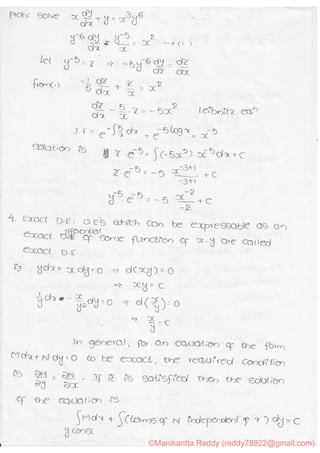 Prob: Solve x dy/dx + y = x³y⁶
y⁻⁶ dy/dx + y⁻⁵/x = x² → (1)
let y⁻⁵ = z ⇒ -5y⁻⁶ dy/dx = dz/dx
from(1) -1/5 dz/dx + z/x = x²
dz/dx - 5/x . z = -5x² Leibnitz eqⁿ
I.F = e^-∫5/x dx = e^-5logx = x⁻⁵
Solution is z e⁻⁵ = ∫(-5x²) x⁻⁵ dx + c
z e⁻⁵ = -5 x^-3+1 / -3+1 + c
y⁻⁵ e⁻⁵ = -5 x⁻²/-2 + c
4. Exact D.E: D.E's which can be expressable as an
exact differential of some function of x, y are called
exact D.E
Eg: ydx + x dy = 0 ⇒ d(xy) = 0
⇒ xy = c
1/y dx - x/y² dy = 0 ⇒ d(x/y) = 0
⇒ x/y = c
In general, for an equation of the form
Mdx + N dy = 0 to be exact, the required condition
is ∂M/∂y = ∂N/∂x . If it is satisfied then the solution
of the equation is
∫Mdx + ∫(terms of N independent of 'x') dy = c
y const
©Manikantta Reddy (reddy78922@gmail.com)